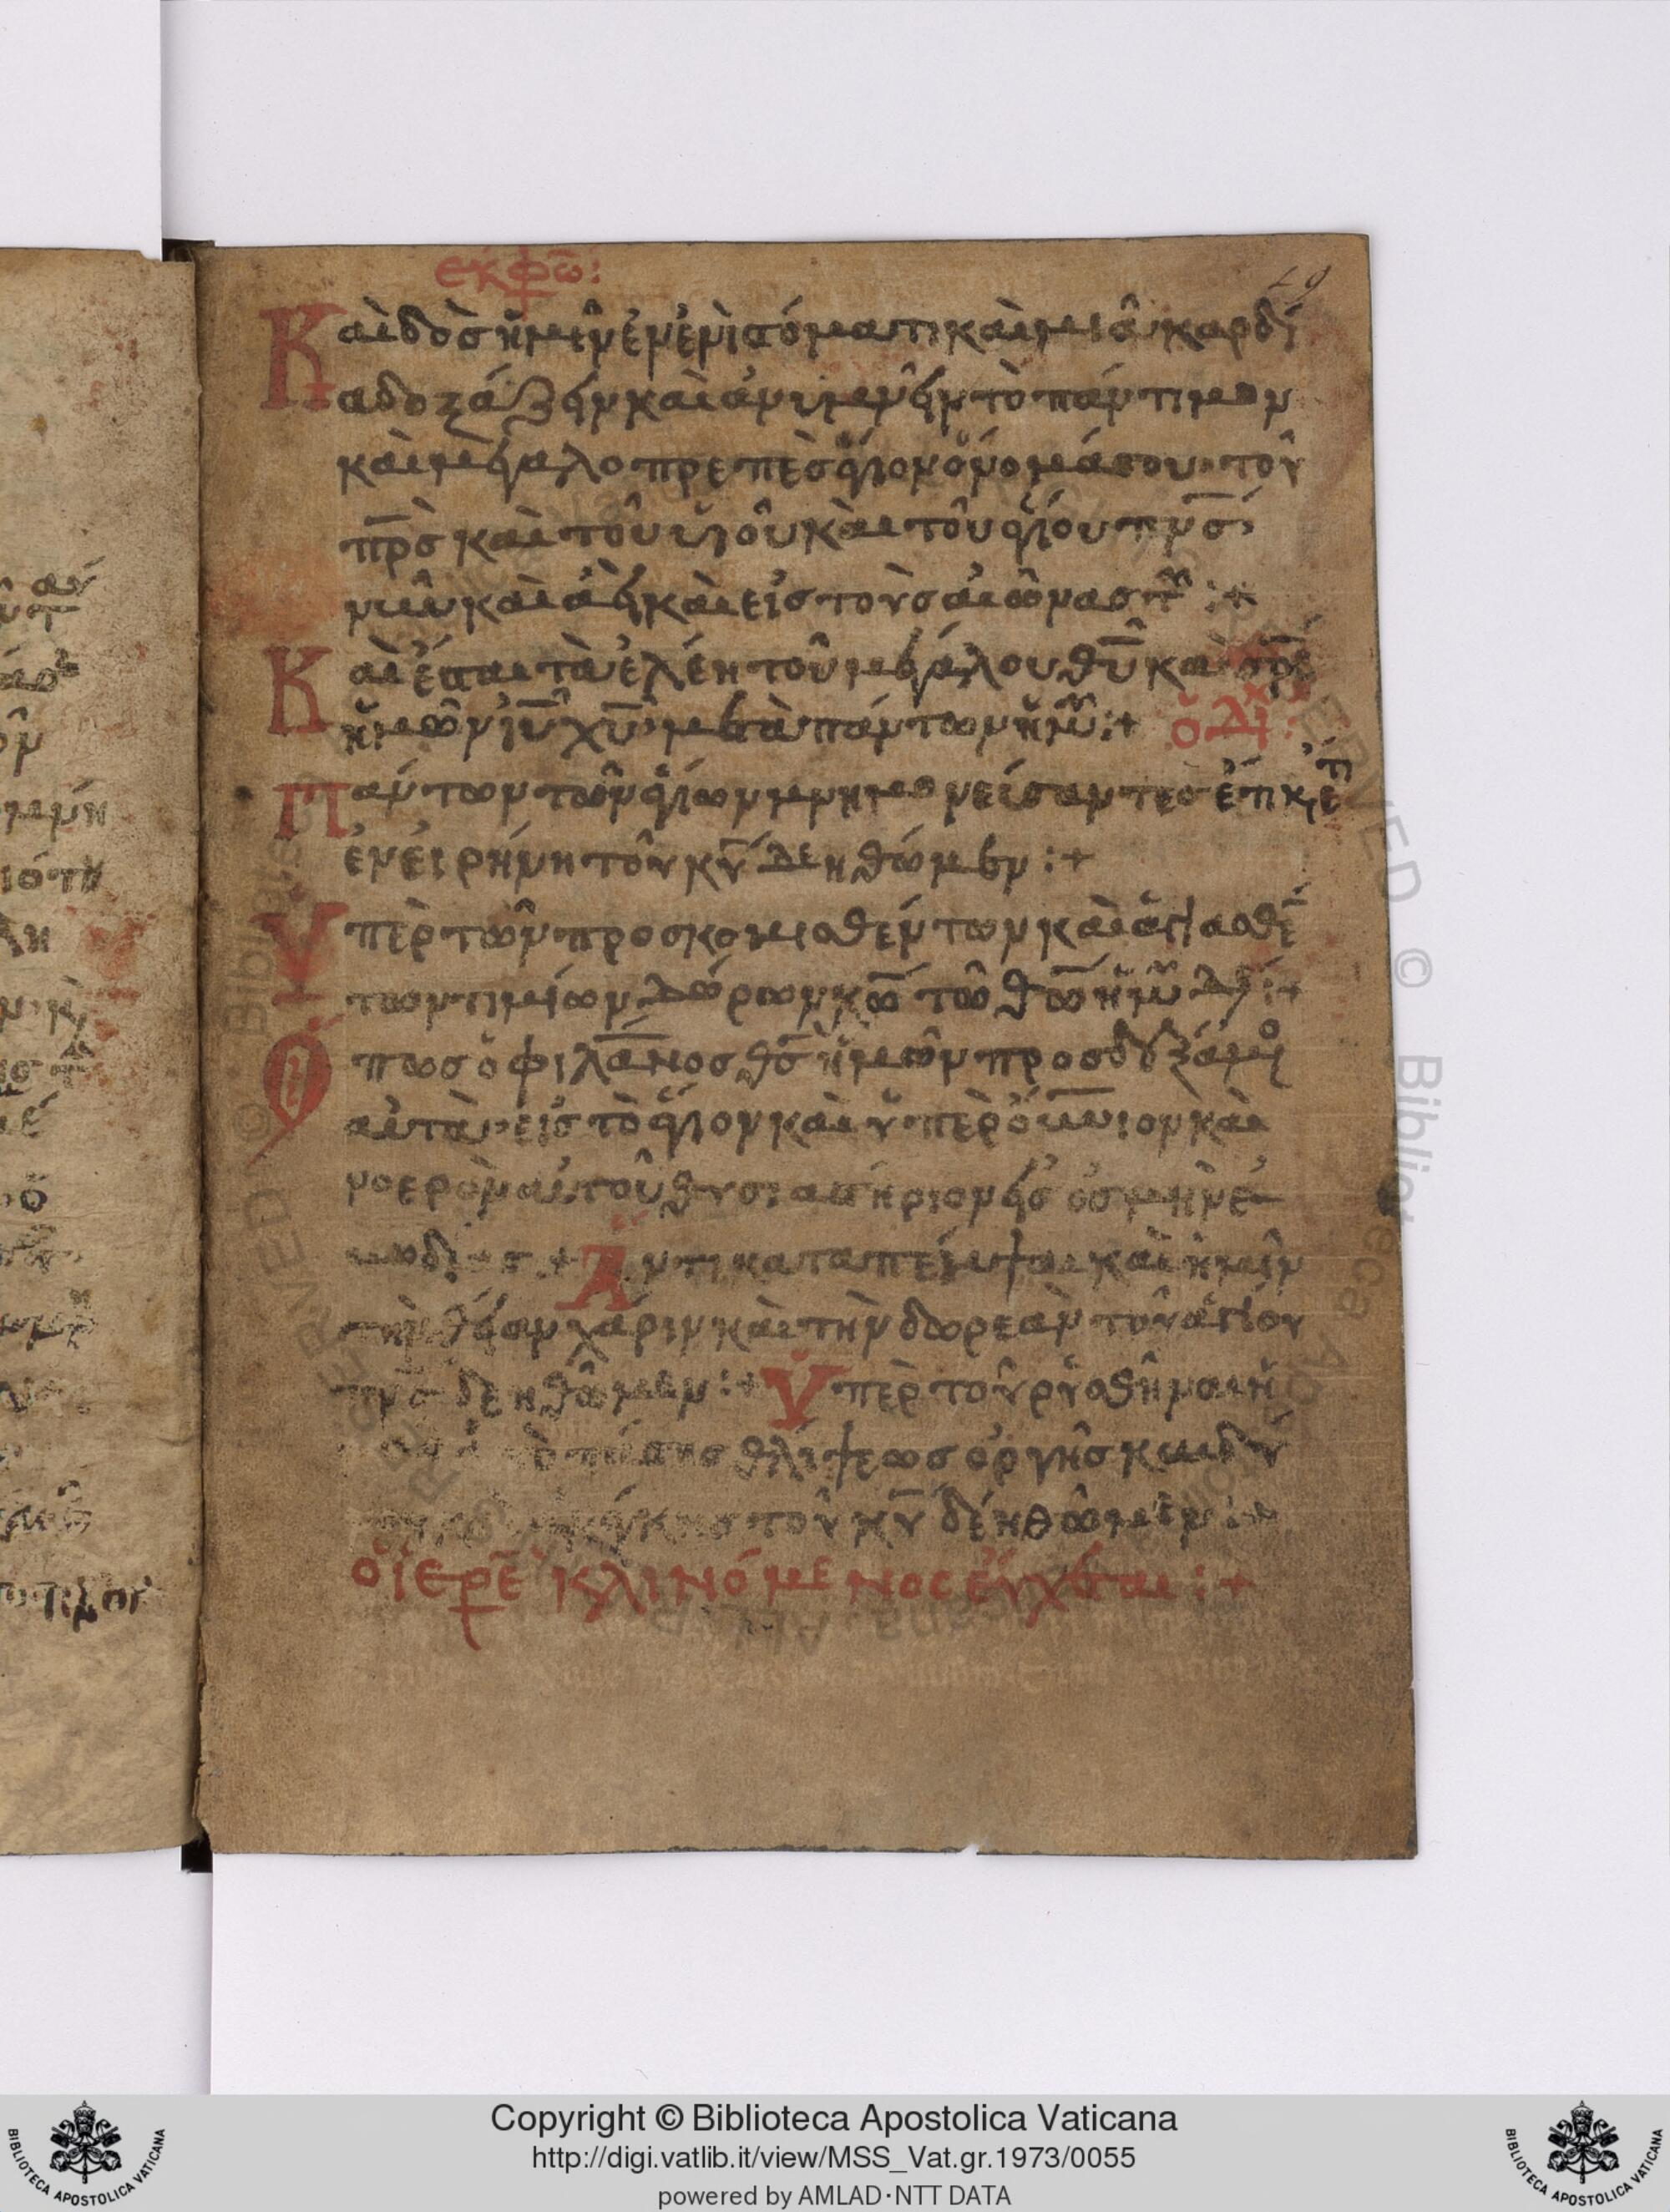 εκφω:
Καὶ δὸς ἡμῖν ἐν ἐνὶ στόματι καὶ μιᾶ καρδί
α δοξάζειν καὶ ἀνυμνεῖν τὸ πάντιμον
καὶ μεγαλοπρεπὲς ἅγιον ὄνομά σου τοῦ
πρς καὶ τοῦ υἱοῦ καὶ τοῦ ἁγίου πνς
νῦν καὶ ἀεὶ καὶ εἰς τοὺς αἰῶνας τῶν :+
Καὶ ἔσται τὰ ἐλέη τοῦ μεγάλου θυ καὶ σρς
ἡμῶν ιυ χυ μετὰ πάντων ἡμῶν :+ ὁ Δι:
Πάντων τῶν ἁγίων μνημονείσαντες ἔτι κ ἔτι
ἐν εἰρήνη τοῦ κυ Δεηθώμεν :+
Ὑπὲρ τῶν προσκομισθέντων καὶ ἁγιασθέ
των τιμίων Δώρων κω τῶ θω ἡμῶν Δε :+
Ὅπως ὁ φιλανος θς ἡμῶν προσδεξάμε
αὐτὰ εἰς τὸ ἅγιον καὶ ὑπὲρ όυνιον καὶ
νοερὸν αὐτοῦ θυσιαστήριον εἰς ὀσμὴν ε
υωδίας :+ Ἀντικαταπέμψαι καὶ ἡμῖν
τὴν θείαν χάριν καὶ τὴν δωρεὰν τοῦ ἁγίου
πνς δεηθῶμεν :+ Ὑπὲρ τοῦ ῥυσθῆναι ἡ
πάσης θλίψεως ὀργῆς κινδύ
ἀνάγκης τοῦ κυ δέηθῶμεν :+
ὁ ἱερε κλινόμενος εὔχεται :+
Copyright © Biblioteca Apostolica Vaticana
http://digi.vatlib.it/view/MSS_Vat.gr.1973/0055
powered by AMLAD·NTT DATA
BIBLIOTECA APOSTOLICA VATICANA
BIBLIOTECA APOSTOLICA VATICANA